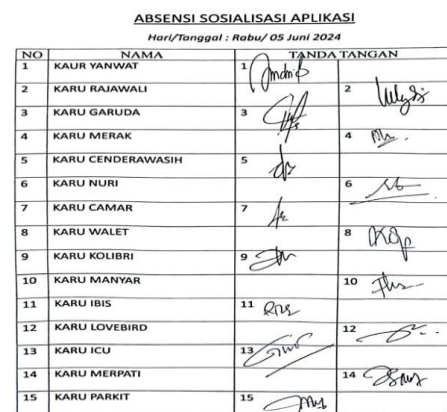 ABSENSI SOSIALISASI APLIKASI
Hari/Tanggal : Rabu/ 05 Juni 2024
NO NAMA TANDA TANGAN
1 KAUR YANWAT 1
2 KARU RAJAWALI 2
3 KARU GARUDA 3
4 KARU MERAK 4
5 KARU CENDERAWASIH 5
6 KARU NURI 6
7 KARU CAMAR 7
8 KARU WALET 8
9 KARU KOLIBRI 9
10 KARU MANYAR 10
11 KARU IBIS 11
12 KARU LOVEBIRD 12
13 KARU ICU 13
14 KARU MERPATI 14
15 KARU PARKIT 15